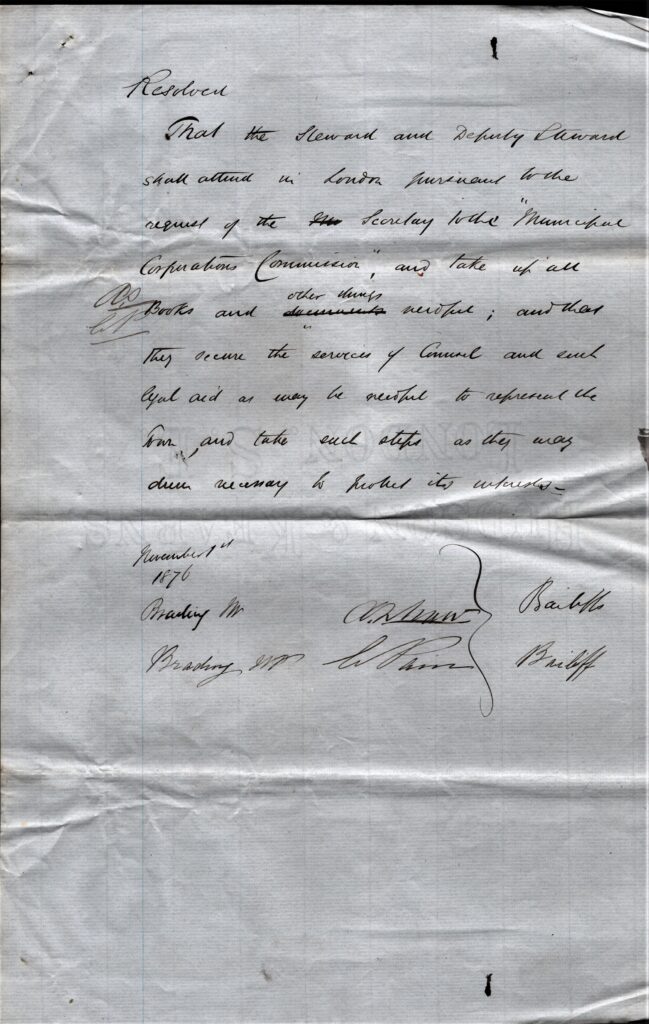 Resolved
That the Steward and Deputy Steward
shall attend in London pursuant to the
request of the Secretary to the "Municipal
Corporations Commission", and take up all
other things
Books and documents needful; and that
they secure the services of Counsel and such
legal aid as may be needful to represent the
Town, and take such steps as they may
deem necessary to protect its interests_
November 1st
1876
Brading IW
Bailiffs
Brading IW
Bailiff